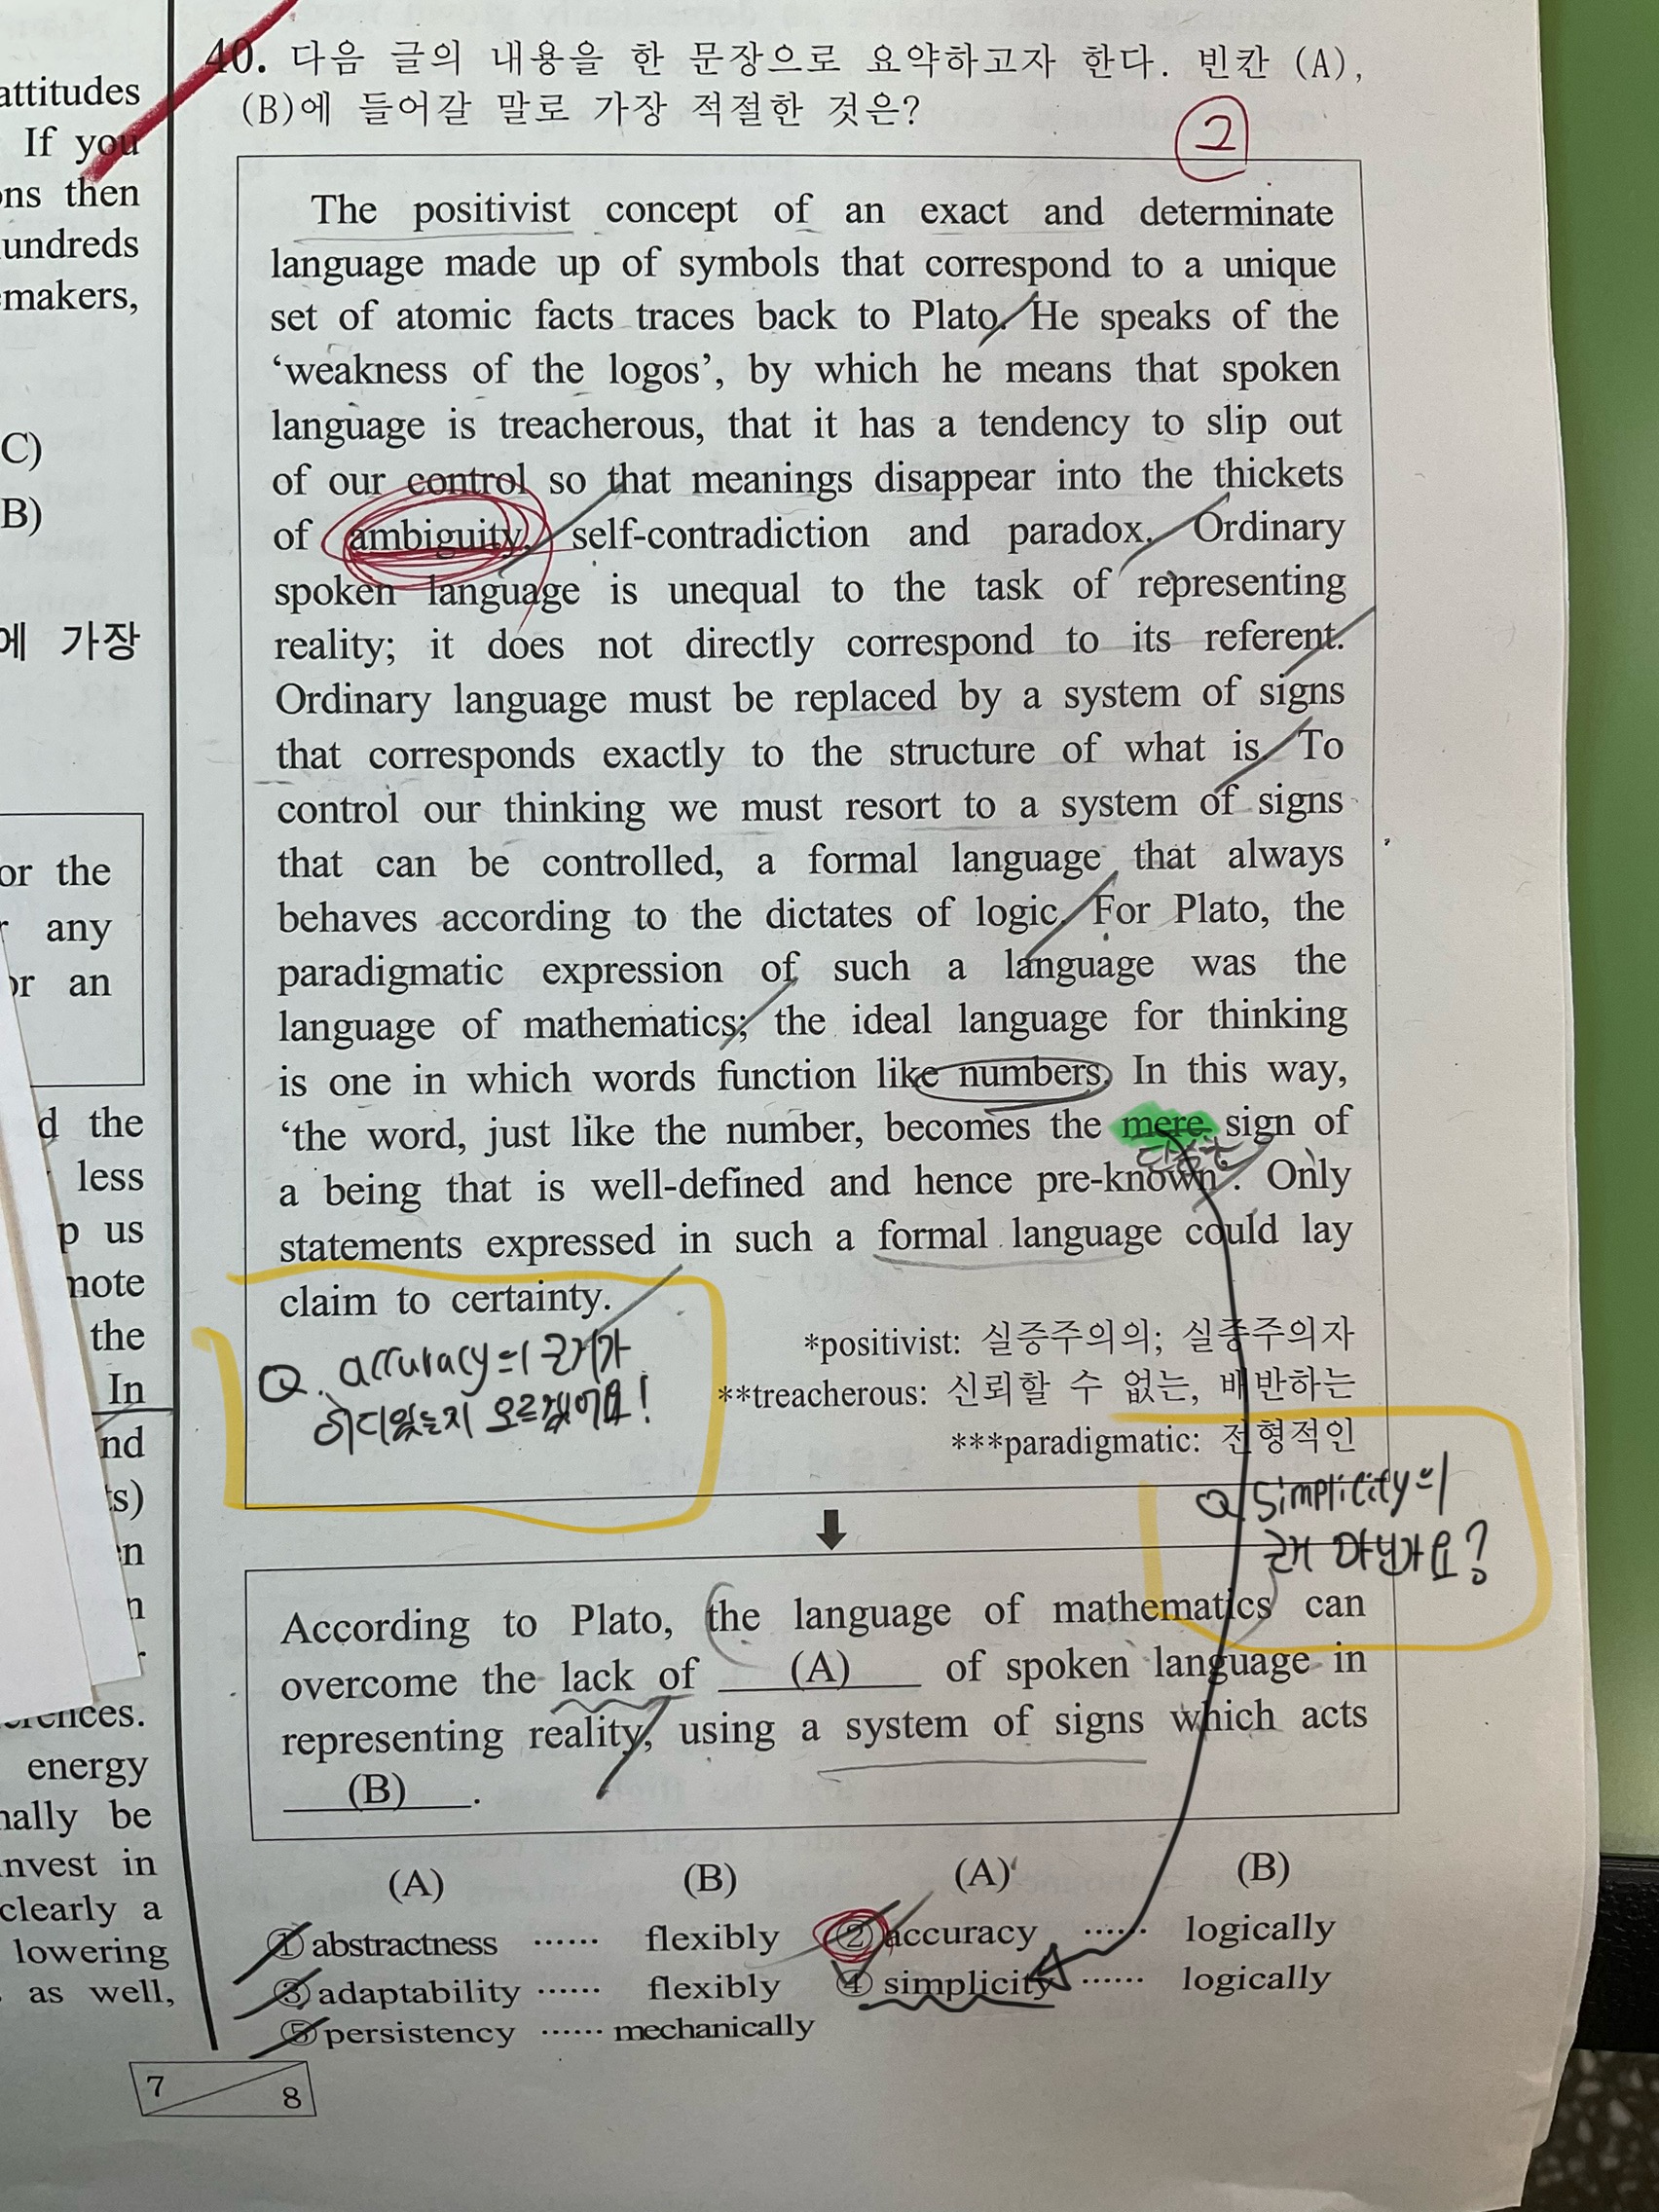 attitudes
If you
ons then
hundreds
emakers,
C)
B)
에 가장
or the
any
or an
d the
less
p us
note
the
In
nd
s)
en
n
r
energy
nally be
invest in
clearly a
lowering
as well,
40. 다음 글의 내용을 한 문장으로 요약하고자 한다. 빈칸 (A),
(B)에 들어갈 말로 가장 적절한 것은?
2
The positivist concept of an exact and determinate
language made up of symbols that correspond to a unique
set of atomic facts traces back to Plato. He speaks of the
‘weakness of the logos’, by which he means that spoken
language is treacherous, that it has a tendency to slip out
of our control so that meanings disappear into the thickets
of ambiguity, self-contradiction and paradox. Ordinary
spoken language is unequal to the task of representing
reality; it does not directly correspond to its referent.
Ordinary language must be replaced by a system of signs
that corresponds exactly to the structure of what is. To
control our thinking we must resort to a system of signs
that can be controlled, a formal language that always
behaves according to the dictates of logic. For Plato, the
paradigmatic expression of such a language was the
language of mathematics; the ideal language for thinking
is one in which words function like numbers. In this way,
‘the word, just like the number, becomes the mere sign of
단순한
a being that is well-defined and hence pre-known’. Only
statements expressed in such a formal language could lay
claim to certainty.
Q. accuracy의 근거가
어디있는지 모르겠어요!
*positivist: 실증주의의; 실증주의자
**treacherous: 신뢰할 수 없는, 배반하는
***paradigmatic: 전형적인
Q. simplicity의
근거 아닌가요?
According to Plato, the language of mathematics can
overcome the lack of (A) of spoken language in
representing reality, using a system of signs which acts
(B) .
(A) (B) (A) (B)
① abstractness …… flexibly ② accuracy …… logically
③ adaptability …… flexibly ④ simplicity …… logically
⑤ persistency …… mechanically
7 8